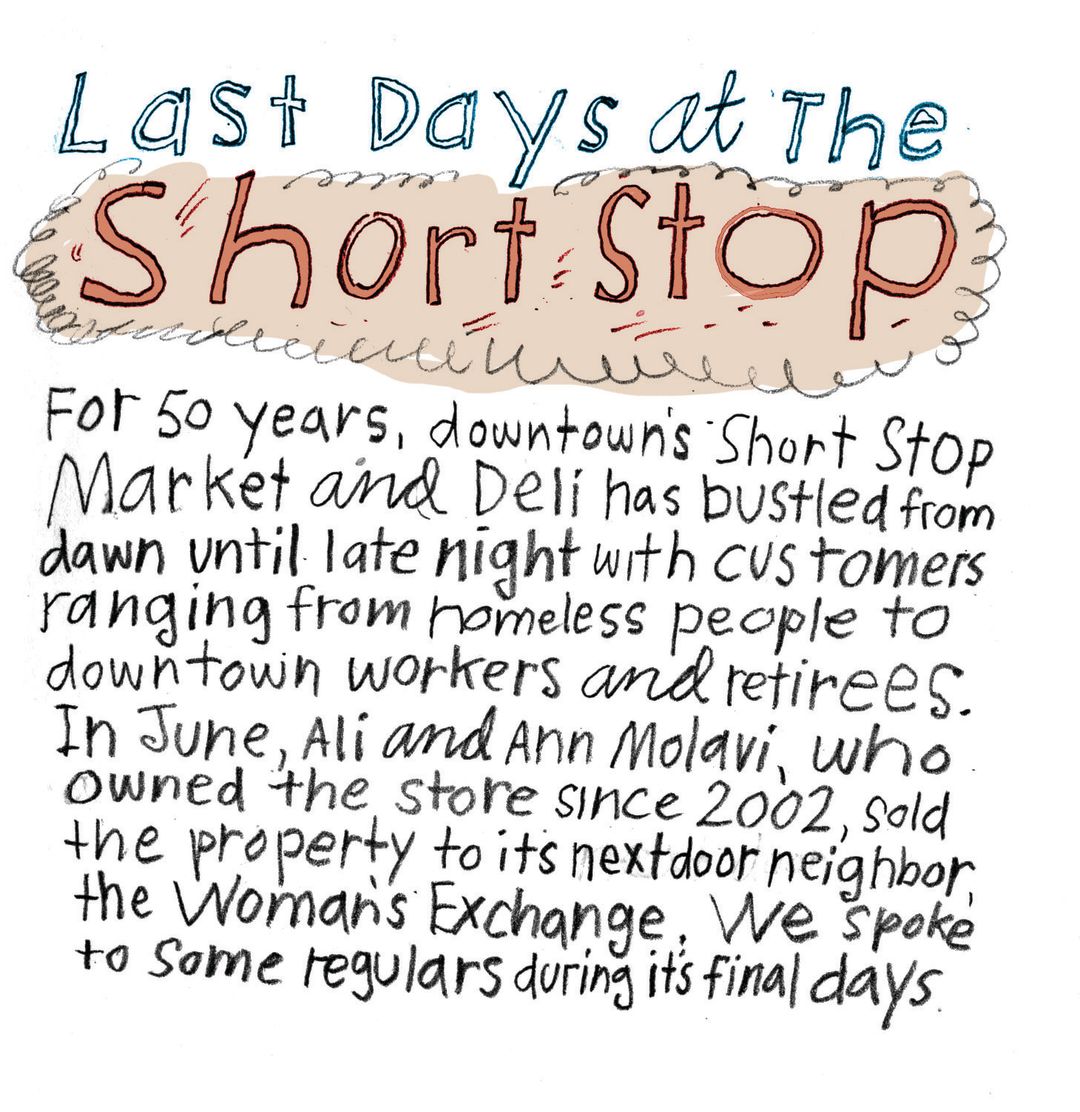 Last Days at The
Short Stop
For 50 years, downtown's Short Stop
Market and Deli has bustled from
dawn until late night with customers
ranging from homeless people to
downtown workers and retirees.
In June, Ali and Ann Molavi, who
owned the store since 2002, sold
the property to its nextdoor neighbor,
the Woman's Exchange. We spoke
to some regulars during it's final days.